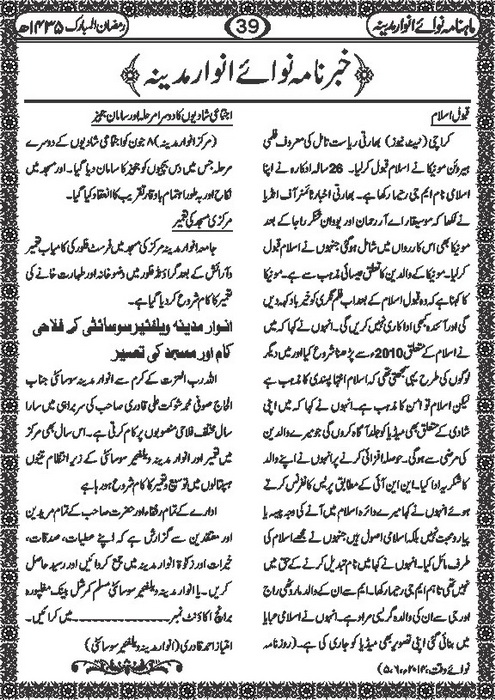 ماہنامہ نوائے انوار مدینہ
39
رمضان المبارک ۱۴۳۵ھ
خبر نامہ نوائے انوار مدینہ
قبول اسلام
کراچی (نیٹ نیوز) بھارتی ریاست تامل کی معروف فلمی
ہیروئن مونیکا نے اسلام قبول کر لیا۔ 26 سالہ اداکارہ نے اپنا
اسلامی نام ایم جی رحیما رکھا ہے۔ بھارتی اخبار ٹائمز آف انڈیا
نے لکھا کہ موسیقار اے آر رحمان اور یووان شنکر راجا کے بعد
مونیکا بھی اس کارواں میں شامل ہو گئی جنہوں نے اسلام قبول
کر لیا۔ مونیکا کے والدین کا تعلق عیسائی مذہب سے ہے۔ مونیکا
کا کہنا ہے کہ وہ قبول اسلام کے بعد اب فلم نگری کو خیرباد کہہ دیں
گی اور آئندہ کبھی اداکاری نہیں کریں گی۔ انہوں نے کہا کہ میں
نے اسلام کے متعلق 2010ء سے پڑھنا شروع کیا اور میں دیگر
لوگوں کی طرح یہی سمجھتی تھی کہ اسلام انتہا پسندی کا مذہب ہے
لیکن اسلام تو امن کا مذہب ہے۔ انہوں نے کہا کہ میں اپنی
شادی کے متعلق بھی میڈیا کو جلد آگاہ کروں گی جو میرے والدین
کی مرضی سے ہوگی۔ حوصلہ افزائی کرنے پر انہوں نے اپنے والد
کا شکریہ ادا کیا۔ این این آئی کے مطابق پریس کانفرنس کرتے
ہوئے انہوں نے کہا میرے دائرہ اسلام میں آنے کی وجہ پیسہ یا
پیار و محبت نہیں بلکہ اسلامی اصول ہیں جنہوں نے مجھے اسلام کی
طرف مائل کیا۔ انہوں نے کہا میں نام تبدیل کرنے کے حق میں
نہیں تھی تاہم ایم جی رحیما رکھا۔ ایم سے ان کے والد ماروتھی راج
اور جی سے ان کی والدہ گریسی مراد ہے۔ انہوں نے اسلامی عبایا
میں بنائی گئی اپنی تصویر بھی میڈیا کو جاری کی ہے۔ (روزنامہ
نوائے وقت
اجتماعی شادیوں کا دوسرا مرحلہ اور سامان جہیز
(مرکز انوار مدینہ) ۸ جون کو اجتماعی شادیوں کے دوسرے
مرحلہ جس میں دس بچیوں کو جہیز کا سامان دیا گیا۔ اور مسجد میں
نکاح اور بہ طور اہتمام باوقار تقریب کا انعقاد کیا گیا۔
مرکزی مسجد کی تعمیر
جامعہ انوار مدینہ مرکز کی مسجد میں فرسٹ فلور کی کامیاب تعمیر
و آرائش کے بعد گراؤنڈ فلور میں وضو خانہ اور طہارت خانے کی
تعمیر کا کام شروع کر دیا گیا ہے۔
انوار مدینہ ویلفیئر سوسائٹی کے فلاحی
کام اور مسجد کی تعمیر
اللہ رب العزت کے کرم سے انوار مدینہ سوسائٹی جناب
الحاج صوفی محمد شوکت علی قادری صاحب کی سربراہی میں سارا
سال مختلف فلاحی منصوبوں پر کام کرتی ہے۔ اس سال بھی مرکز
میں تعمیر اور انوار مدینہ ویلفیئر سوسائٹی کے زیر انتظام تینوں
ہسپتالوں میں توسیع و تعمیر کا کام شروع ہو رہا ہے
ادارے کے تمام رفقاء اور حضرت صاحب کے تمام مریدین
اور معتقدین سے گزارش ہے کہ اپنے عطیات، صدقات،
خیرات اور زکوٰۃ انوار مدینہ میں جمع کروائیں اور رسید حاصل
کریں۔ یا انوار مدینہ ویلفیئر سوسائٹی مسلم کمرشل بینک مغلپورہ
برانچ اکاؤنٹ نمبر ۔۔۔۔۔۔۔۔۔۔ میں کرائیں۔
امتیاز احمد قادری (انوار مدینہ ویلفیئر سوسائٹی)